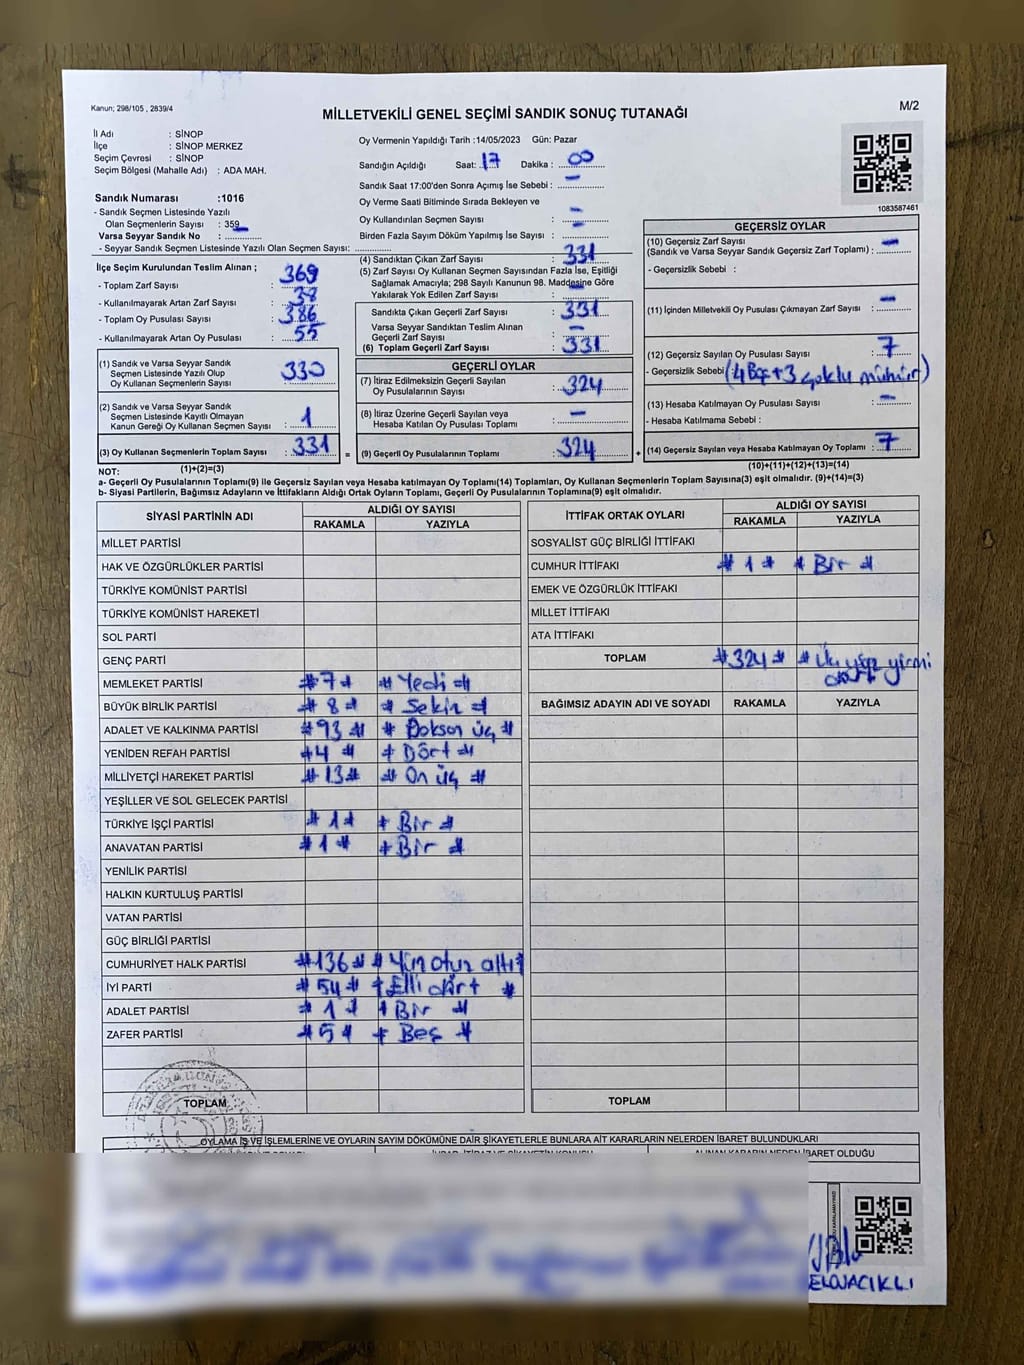 Kanun; 298/105 , 2839/4
MİLLETVEKİLİ GENEL SEÇİMİ SANDIK SONUÇ TUTANAĞI
M/2
İl Adı : SİNOP
İlçe : SİNOP MERKEZ
Seçim Çevresi : SİNOP
Seçim Bölgesi (Mahalle Adı) : ADA MAH.
Sandık Numarası :1016
- Sandık Seçmen Listesinde Yazılı
Olan Seçmenlerin Sayısı : 359
Varsa Seyyar Sandık No :
- Seyyar Sandık Seçmen Listesinde Yazılı Olan Seçmen Sayısı:
Oy Vermenin Yapıldığı Tarih :14/05/2023 Gün: Pazar
Sandığın Açıldığı Saat: 17 Dakika : 00
Sandık Saat 17:00'den Sonra Açımış İse Sebebi : –
Oy Verme Saati Bitiminde Sırada Bekleyen ve
Oy Kullandırılan Seçmen Sayısı : –
Birden Fazla Sayım Döküm Yapılmış İse Sayısı : –
1083587461
İlçe Seçim Kurulundan Teslim Alınan ;
- Toplam Zarf Sayısı : 369
- Kullanılmayarak Artan Zarf Sayısı : 38
- Toplam Oy Pusulası Sayısı : 386
- Kullanılmayarak Artan Oy Pusulası : 55
(1) Sandık ve Varsa Seyyar Sandık
Seçmen Listesinde Yazılı Olup
Oy Kullanan Seçmenlerin Sayısı : 330
(2) Sandık ve Varsa Seyyar Sandık
Seçmen Listesinde Kayıtlı Olmayan
Kanun Gereği Oy Kullanan Seçmen Sayısı : 1
(3) Oy Kullanan Seçmenlerin Toplam Sayısı : 331 =
(4) Sandıktan Çıkan Zarf Sayısı : 331
(5) Zarf Sayısı Oy Kullanan Seçmen Sayısından Fazla İse, Eşitliği
Sağlamak Amacıyla; 298 Sayılı Kanunun 98. Maddesine Göre
Yakılarak Yok Edilen Zarf Sayısı : –
Sandıkta Çıkan Geçerli Zarf Sayısı : 331
Varsa Seyyar Sandıktan Teslim Alınan
Geçerli Zarf Sayısı : –
(6) Toplam Geçerli Zarf Sayısı : 331
GEÇERLİ OYLAR
(7) İtiraz Edilmeksizin Geçerli Sayılan
Oy Pusulalarının Sayısı : 324
(8) İtiraz Üzerine Geçerli Sayılan veya
Hesaba Katılan Oy Pusulası Toplamı : –
(9) Geçerli Oy Pusulalarının Toplamı : 324 +
GEÇERSİZ OYLAR
(10) Geçersiz Zarf Sayısı
(Sandık ve Varsa Seyyar Sandık Geçersiz Zarf Toplamı) : –
- Geçersizlik Sebebi :
(11) İçinden Milletvekili Oy Pusulası Çıkmayan Zarf Sayısı : –
(12) Geçersiz Sayılan Oy Pusulası Sayısı : 7
- Geçersizlik Sebebi : (4 Boş + 3 çoklu mühür)
(13) Hesaba Katılmayan Oy Pusulası Sayısı : –
- Hesaba Katılmama Sebebi :
(14) Geçersiz Sayılan veya Hesaba Katılmayan Oy Toplamı : 7
NOT: (1)+(2)=(3) (10)+(11)+(12)+(13)=(14)
a- Geçerli Oy Pusulalarının Toplamı(9) ile Geçersiz Sayılan veya Hesaba katılmayan Oy Toplamı(14) Toplamları, Oy Kullanan Seçmenlerin Toplam Sayısına(3) eşit olmalıdır. (9)+(14)=(3)
b- Siyasi Partilerin, Bağımsız Adayların ve İttifakların Aldığı Ortak Oyların Toplamı, Geçerli Oy Pusulalarının Toplamına(9) eşit olmalıdır.
SİYASİ PARTİNİN ADI ALDIĞI OY SAYISI
RAKAMLA YAZIYLA
MİLLET PARTİSİ
HAK VE ÖZGÜRLÜKLER PARTİSİ
TÜRKİYE KOMÜNİST PARTİSİ
TÜRKİYE KOMÜNİST HAREKETİ
SOL PARTİ
GENÇ PARTİ
MEMLEKET PARTİSİ #7# # Yedi #
BÜYÜK BİRLİK PARTİSİ # 8# # Sekiz #
ADALET VE KALKINMA PARTİSİ #93 # # Doksan üç #
YENİDEN REFAH PARTİSİ #4 # # Dört #
MİLLİYETÇİ HAREKET PARTİSİ # 13# # On üç #
YEŞİLLER VE SOL GELECEK PARTİSİ
TÜRKİYE İŞÇİ PARTİSİ # 1# # Bir #
ANAVATAN PARTİSİ #1 # # Bir #
YENİLİK PARTİSİ
HALKIN KURTULUŞ PARTİSİ
VATAN PARTİSİ
GÜÇ BİRLİĞİ PARTİSİ
CUMHURİYET HALK PARTİSİ #136# # Yüz otuz altı #
İYİ PARTİ # 54 # # Elli dört #
ADALET PARTİSİ # 1 # # Bir #
ZAFER PARTİSİ #5# # Beş #
TOPLAM
İTTİFAK ORTAK OYLARI ALDIĞI OY SAYISI
RAKAMLA YAZIYLA
SOSYALİST GÜÇ BİRLİĞİ İTTİFAKI
CUMHUR İTTİFAKI # 1 # # Bir #
EMEK VE ÖZGÜRLÜK İTTİFAKI
MİLLET İTTİFAKI
ATA İTTİFAKI
TOPLAM #324 # # Üç yüz yirmi
dört #
BAĞIMSIZ ADAYIN ADI VE SOYADI RAKAMLA YAZIYLA
TOPLAM
OYLAMA İŞ VE İŞLEMLERİNE VE OYLARIN SAYIM DÖKÜMÜNE DAİR ŞİKAYETLERLE BUNLARA AİT KARARLARIN NELERDEN İBARET BULUNDUKLARI